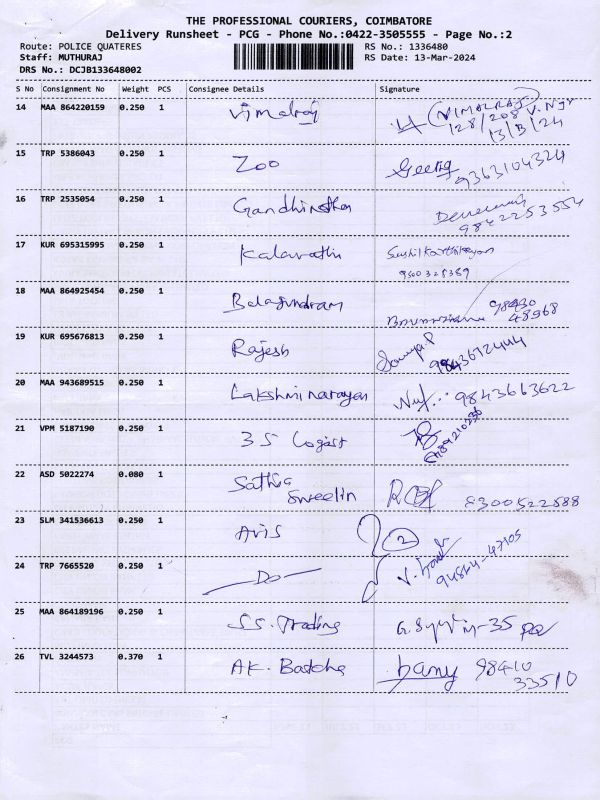 THE PROFESSIONAL COURIERS, COIMBATORE
Delivery Runsheet - PCG - Phone No.:0422-3505555 - Page No.:2
Route: POLICE QUATERES RS No.: 1336480
Staff: MUTHURAJ RS Date: 13-Mar-2024
DRS No.: DCJB133648002
S No Consignment No Weight PCS Consignee Details Signature
14 MAA 864220159 0.250 1 Vimalraj (VIMALRAJ)
128/208 V. Ngr
13/B/24
15 TRP 5386043 0.250 1 Zoo Geetha 9363104324
16 TRP 2535054 0.250 1 Gandhinathan
9842253554
17 KUR 695315995 0.250 1 Kalavathi Sushil Karthikeyan
9500325389
18 MAA 864925454 0.250 1 Balasundram 98430
48968
19 KUR 695676813 0.250 1 Rajesh Sowmya.P
20 MAA 943689515 0.250 1 Lakshmi narayan 9843663622
21 VPM 5187190 0.250 1 3S Logist
22 ASD 5022274 0.080 1 Sathia
Sweelin 8300522588
23 SLM 341536613 0.250 1 Avis 2
24 TRP 7665520 0.250 1 — Do — 94864-47105
25 MAA 864189196 0.250 1 S.S. Trading
26 TVL 3244573 0.370 1 A.K. Badsha 98410
33510